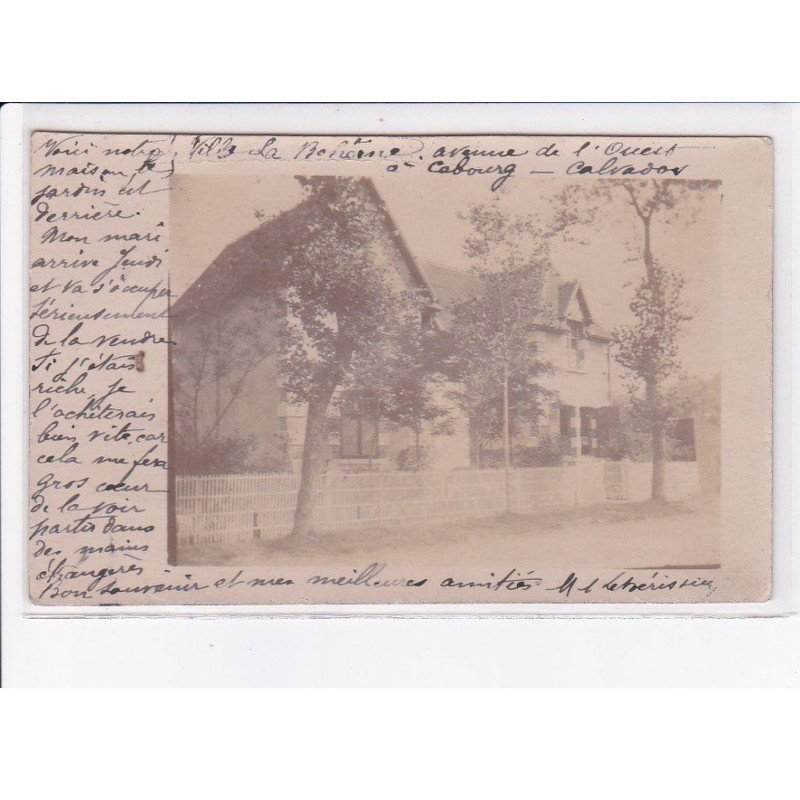 Villa La Bohême. avenue de l'Ouest
à Cabourg — Calvados
Voici notre
maison, le
jardin est
derrière.
Mon mari
arrive Jeudi
et va s'occuper
sérieusement
de la vendre
Si j'étais
riche je
l'achèterais
bien vite, car
cela me fera
gros cœur
de la voir
partir dans
des mains
étrangères
Bon souvenir et mes meilleures amitiés